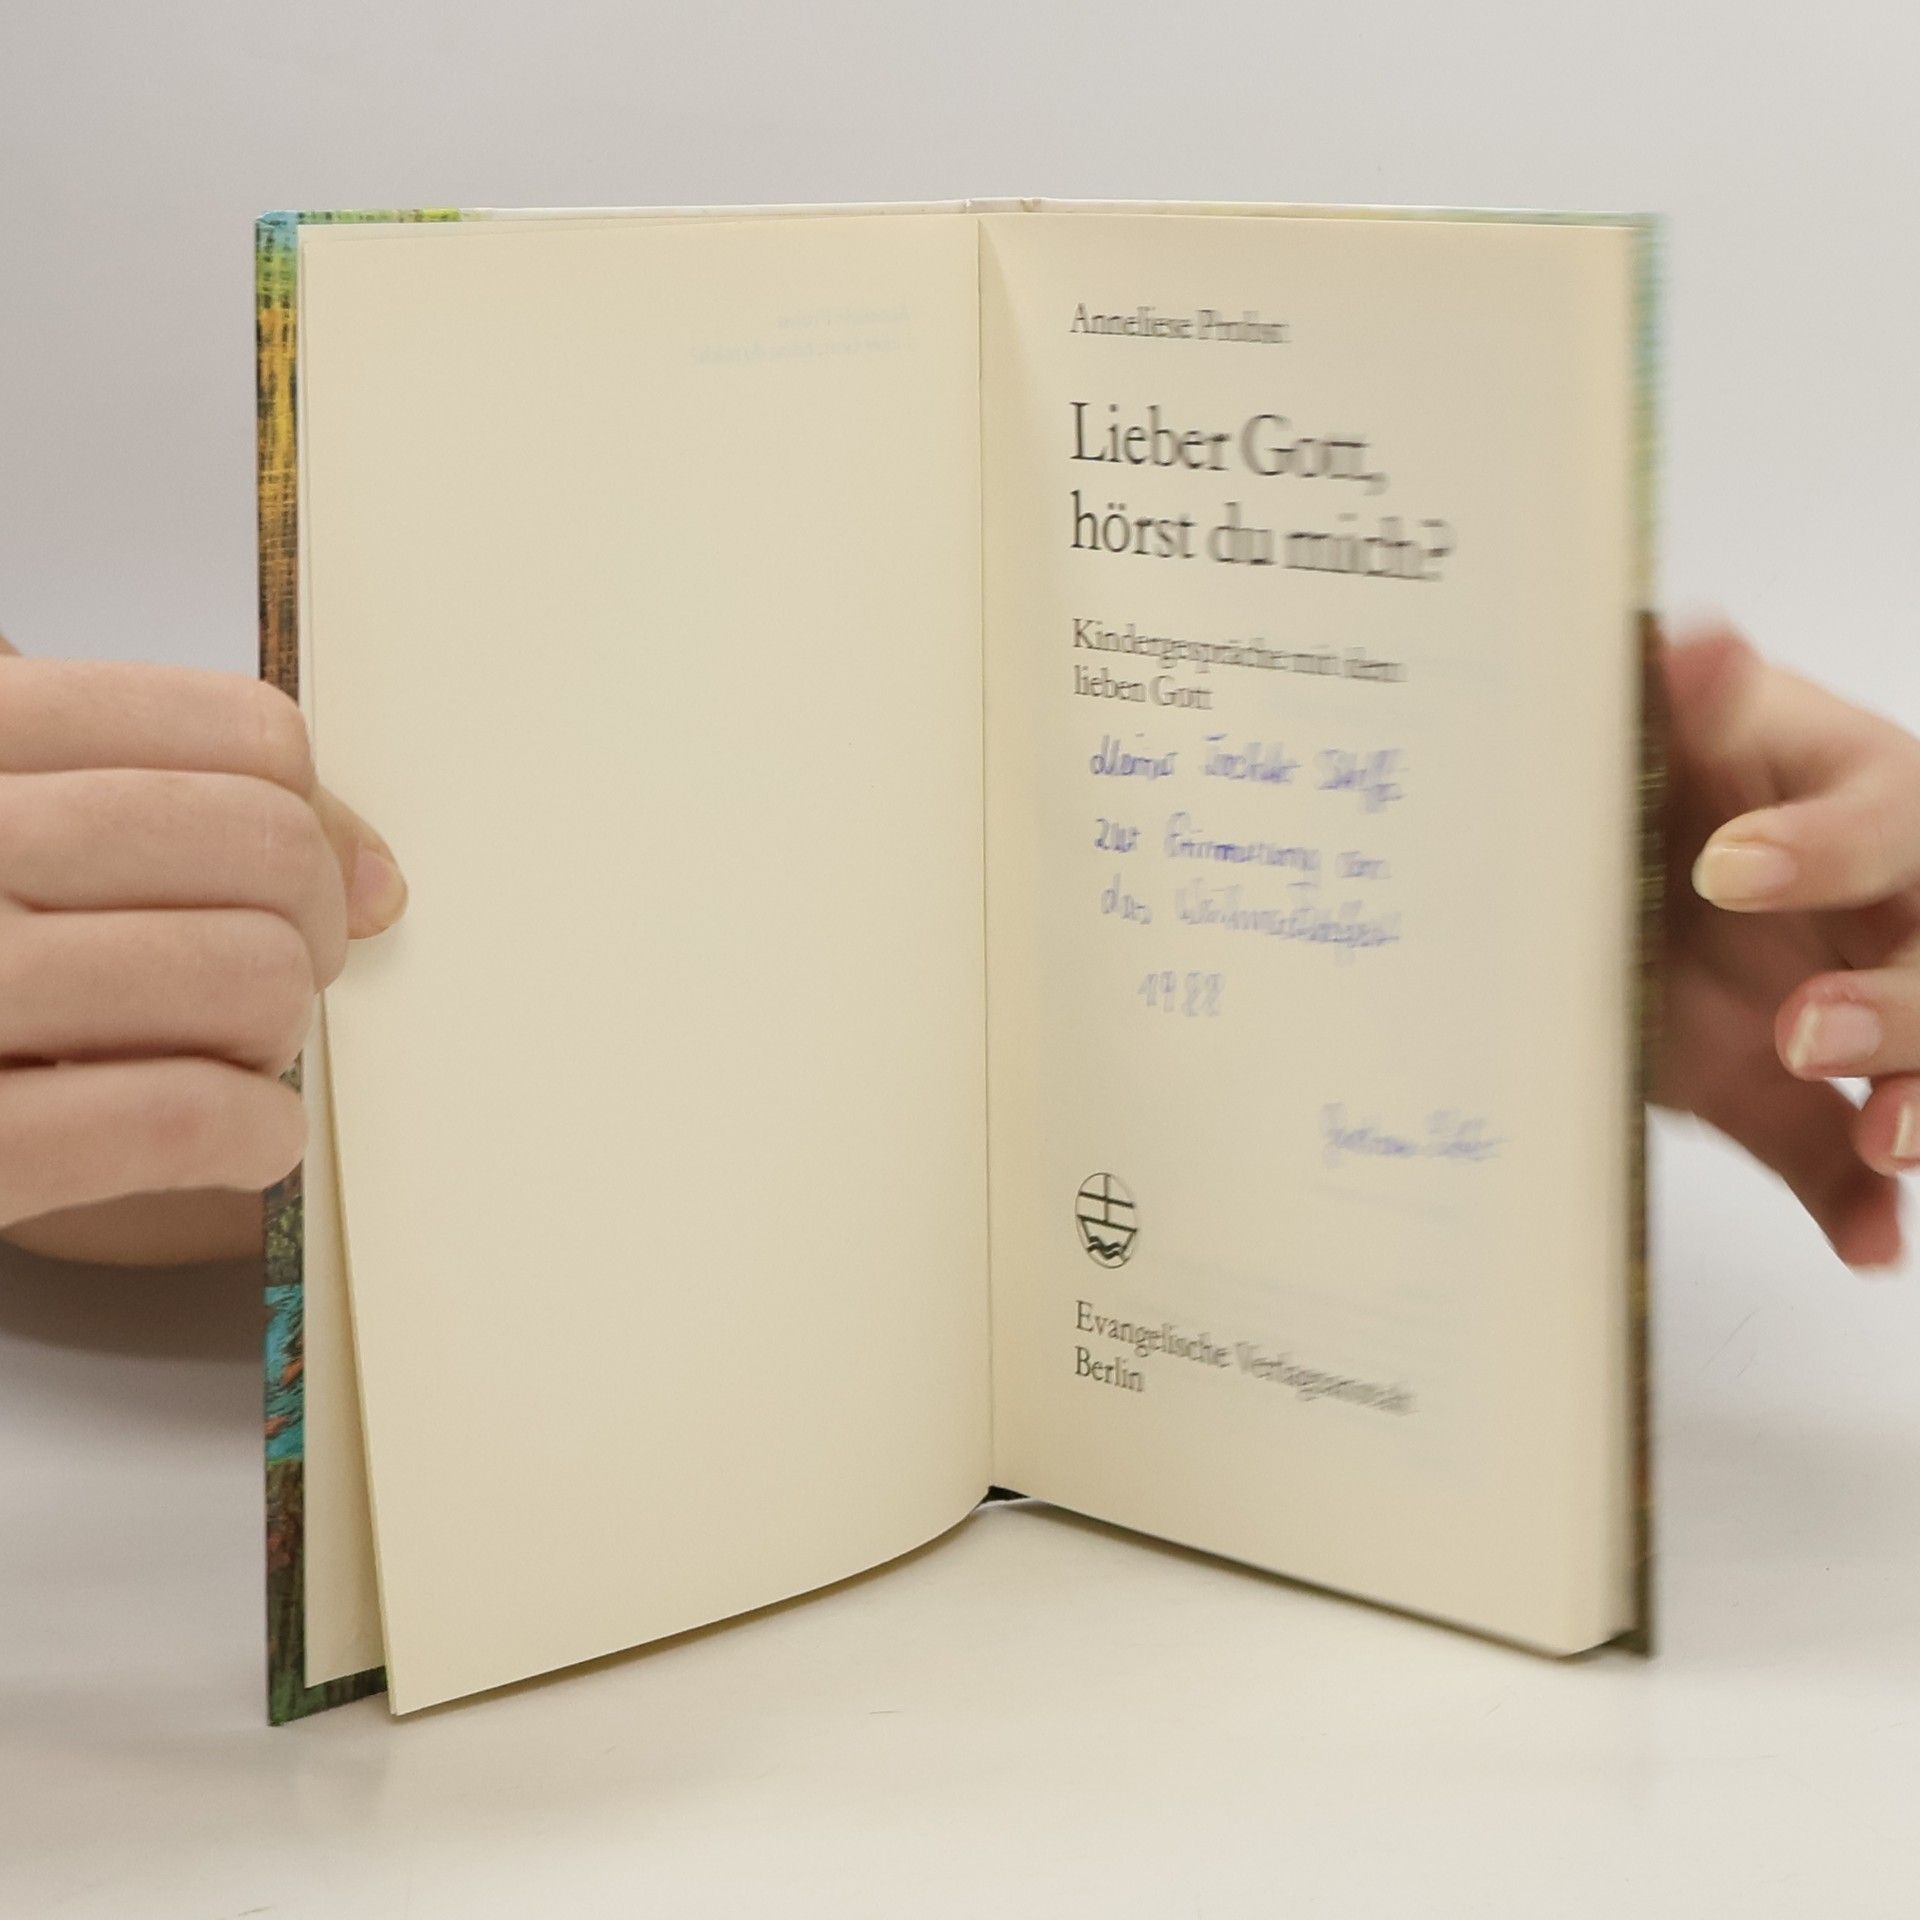 Anneliese Probst
Lieber Gott,
hörst du mich?
Kindergespräche mit dem
lieben Gott
Meiner Tochter
zur Erinnerung an
das Weihnachtsfest
1988
Evangelische Verlagsanstalt
Berlin